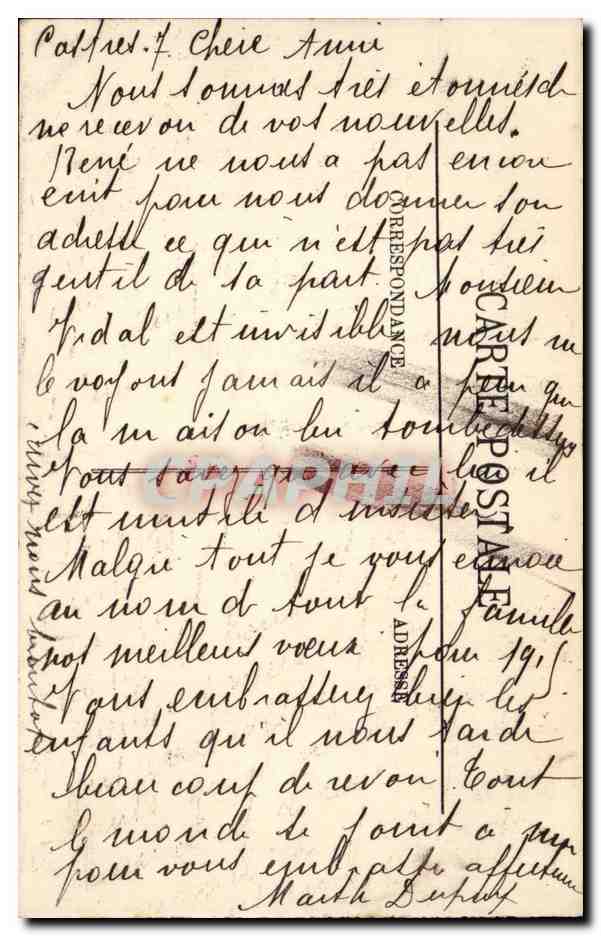 Castres. 7 Chère Amie
Nous sommes très étonnés de
ne recevoir de vos nouvelles.
René ne nous a pas encore
écrit pour nous donner son
adresse ce qui n'est pas très
gentil de sa part. Monsieur
Vidal est invisible nous ne
le voyons jamais il a peur que
la maison lui tombe dessus
Vous savez qu'avec lui il
est inutile d'insister
Malgré tout je vous envoie
au nom de tout la famille
nos meilleurs voeux pour 1915
Vous embrasserez bien les
enfants qu'il nous tarde
beaucoup de revoir. Tout
le monde se joint à moi
pour vous embrasser affectueu
Marthe Dupuy
CORRESPONDANCE
CARTE POSTALE
ADRESSE
CPAPHIL